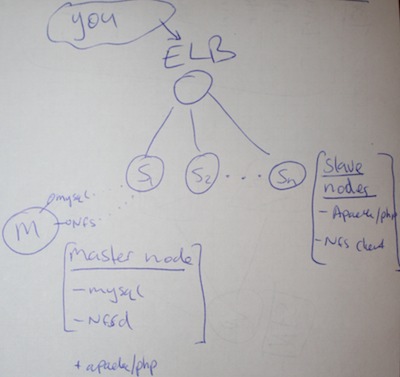 you
ELB
S1 S2 Sn
Slave
nodes
- Apache/php
- NFS client
mysql
NFS
M
Master node
- mysql
- NFSd
+ apache/php